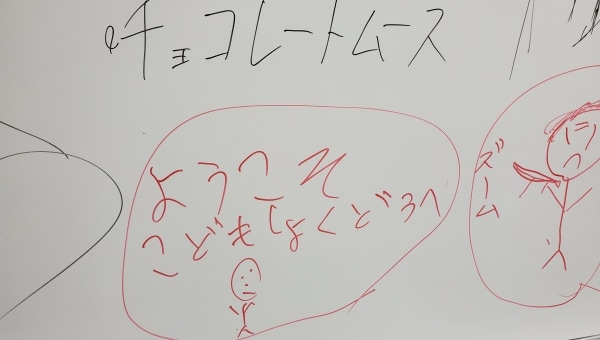 チョコレートムース
ようこそ
こどもしよくどろへ
ズーム